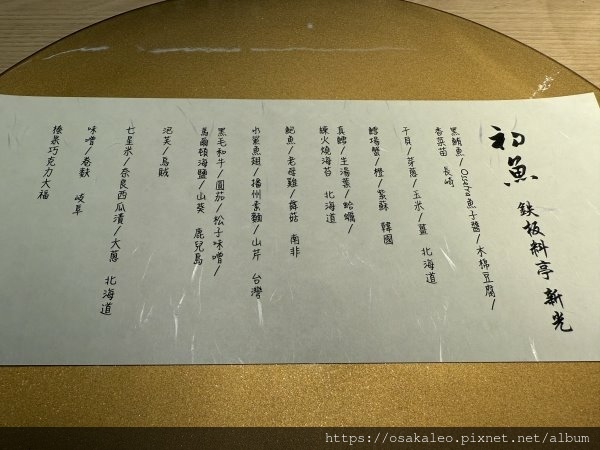 初魚 鉄板料亭 新光
黑鮪魚/Oscietra魚子醬/木棉豆腐/
香菜苗 長崎
干貝/芽蔥/玉米/薑 北海道
鱈場蟹/橙/紫蘇 韓國
真鱈/生湯葉/蛤蠣/
練火燒海苔 北海道
鮑魚/老母雞/蘑菇 南非
小鯊魚翅/播州素麵/山芹 台灣
黑毛和牛/圓茄/松子味噌/
馬爾頓海鹽/山葵 鹿兒島
泡芙/烏賊
七星米/奈良西瓜漬/大蔥 北海道
味噌/卷麩 岐阜
榛果巧克力大福
https://osakaleo.pixnet.net/album